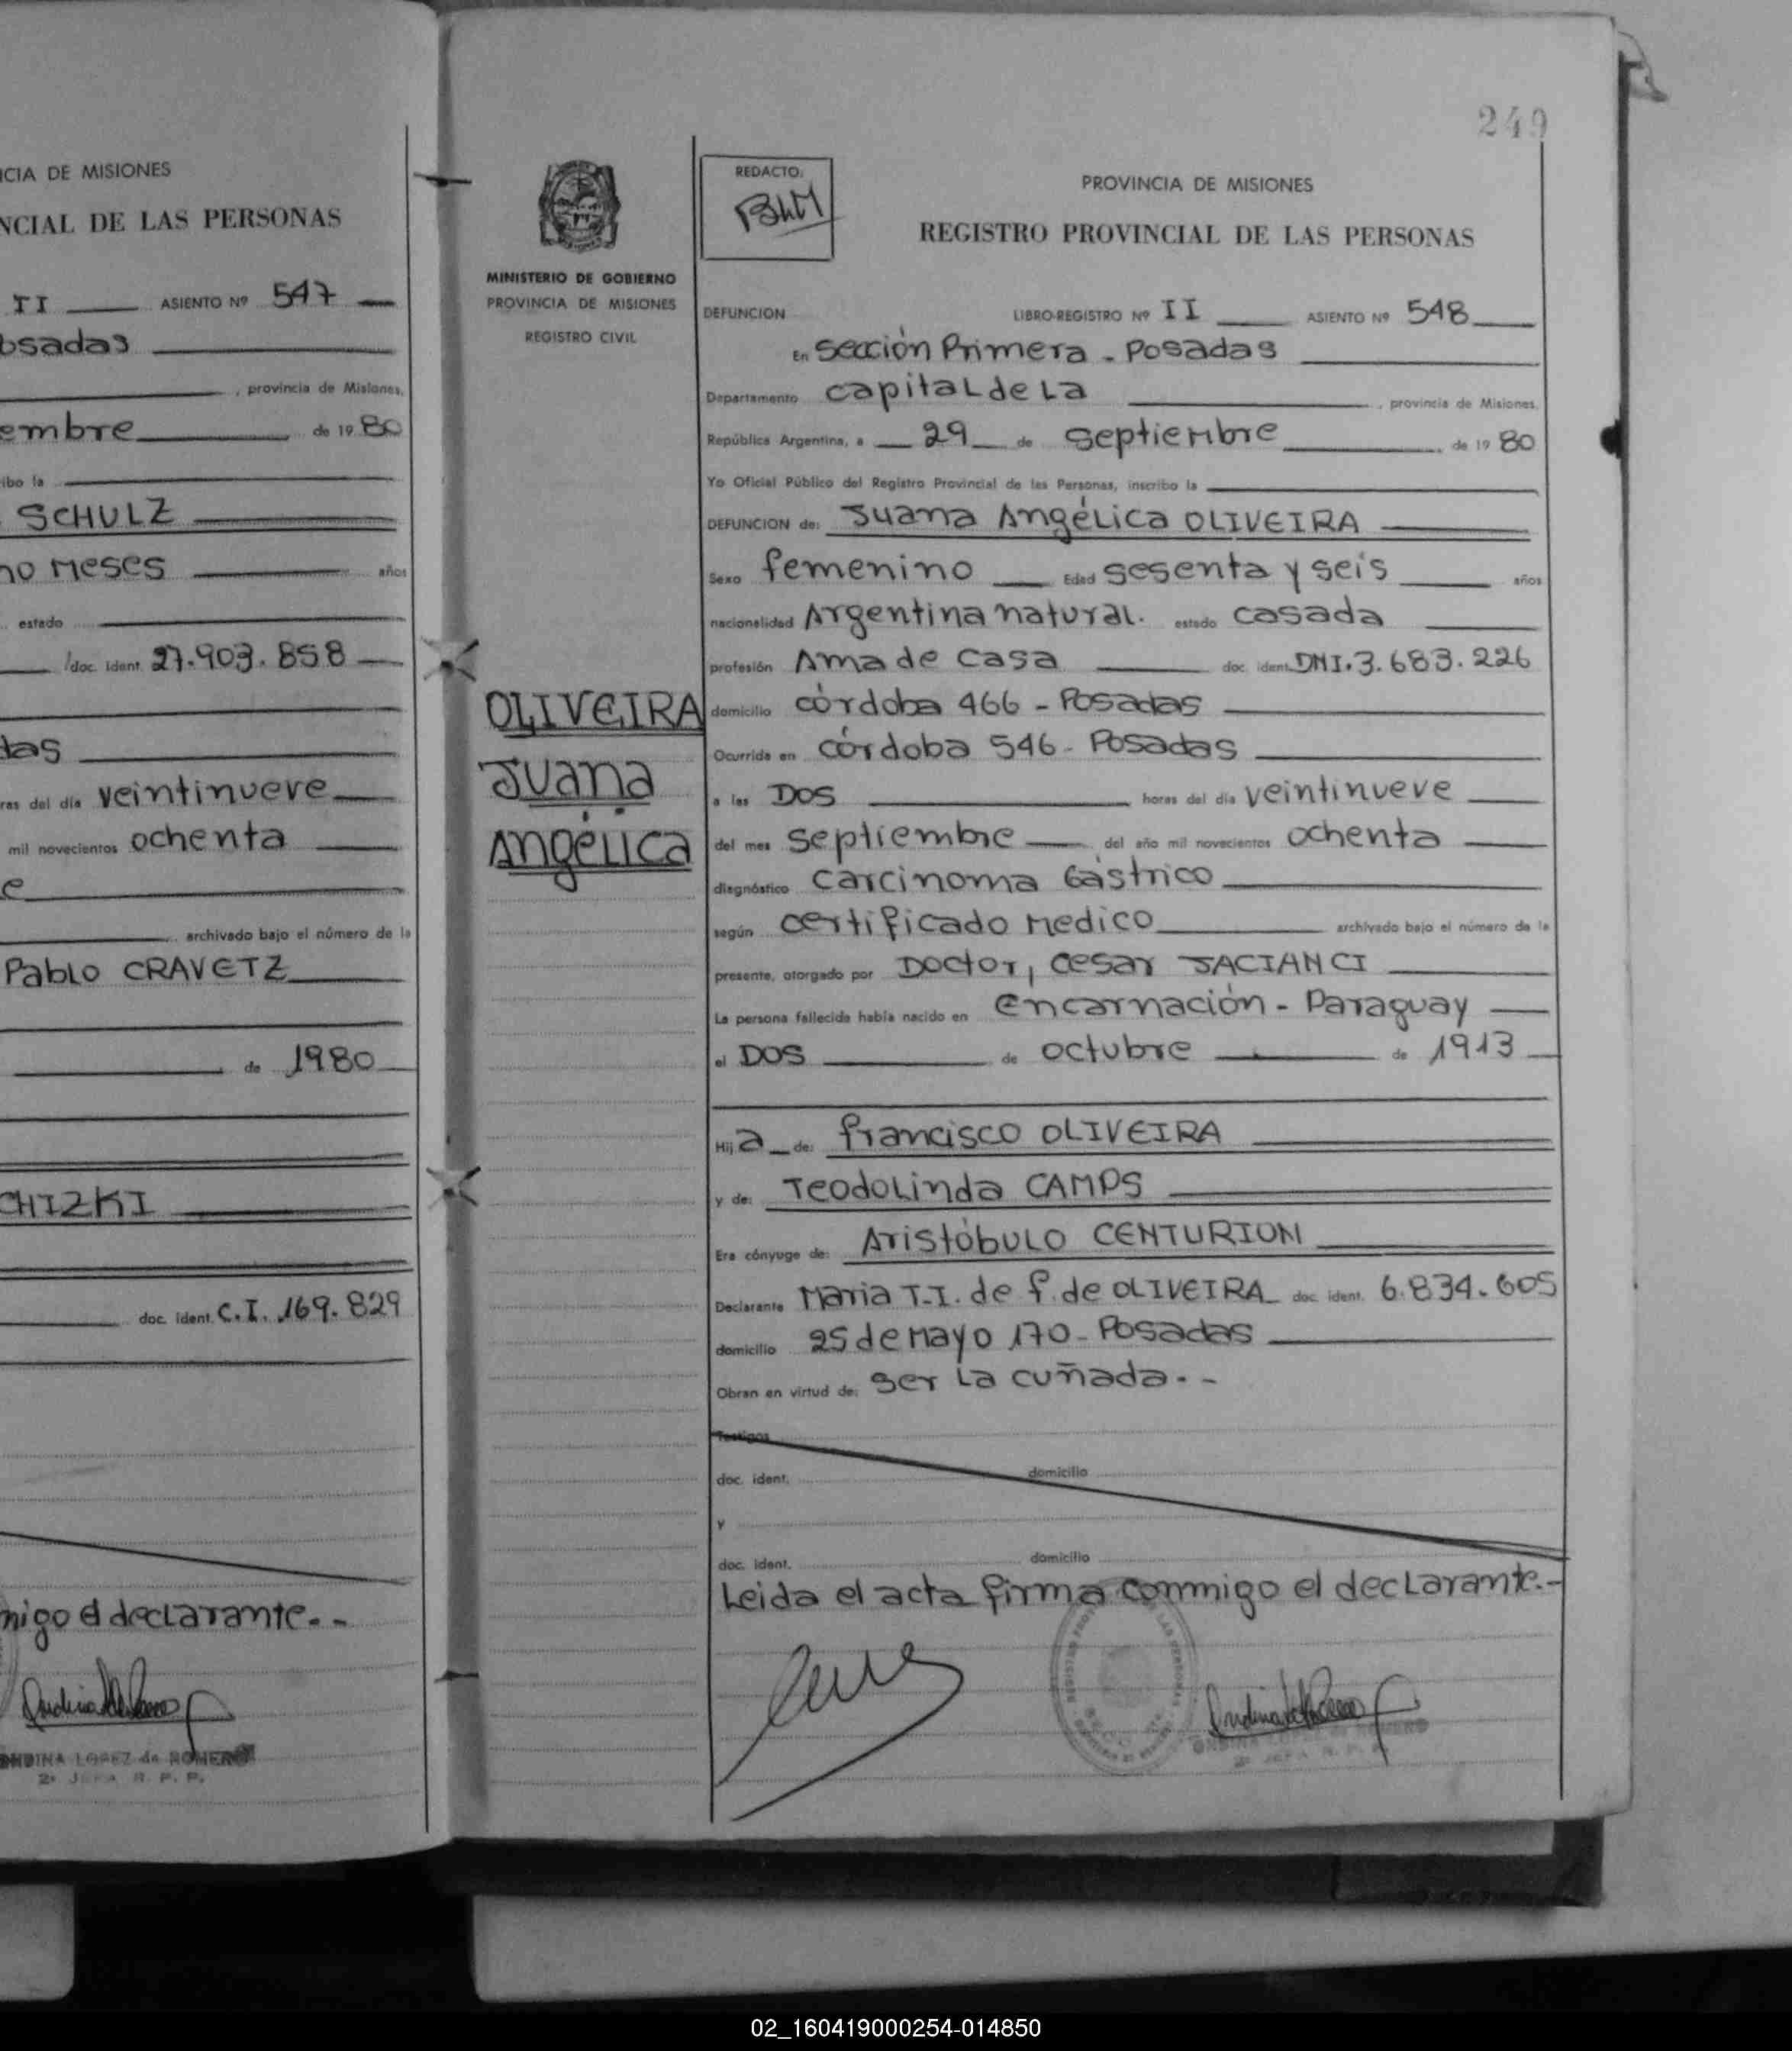 CIA DE MISIONES
NCIAL DE LAS PERSONAS
II ASIENTO Nº 547
osadas
, provincia de Misiones,
embre de 1980
ibo la
SCHULZ
no meses años
estado
doc. ident. 27.903.858
das
ras del día veintinueve
mil novecientos ochenta
e
archivado bajo el número de la
Pablo CRAVETZ
de 1980
CHIZKI
doc. ident. C.I. 169.829
migo el declarante.-
ONDINA LOPEZ de ROMERO
2ª JEFA R. P. P.
249
MINISTERIO DE GOBIERNO
PROVINCIA DE MISIONES
REGISTRO CIVIL
OLIVEIRA
Juana
Angélica
REDACTO:
PROVINCIA DE MISIONES
REGISTRO PROVINCIAL DE LAS PERSONAS
DEFUNCION LIBRO-REGISTRO Nº II ASIENTO Nº 548
En sección Primera - Posadas
Departamento capital de La , provincia de Misiones,
República Argentina, a 29 de septiembre de 1980
Yo Oficial Público del Registro Provincial de las Personas, inscribo la
DEFUNCION de: Juana Angélica OLIVEIRA
Sexo femenino Edad sesenta y seis años
nacionalidad Argentina natural. estado casada
profesión Ama de casa doc. ident. DNI.3.683.226
domicilio córdoba 466 - Posadas
Ocurrida en córdoba 546 - Posadas
a las DOS horas del día veintinueve
del mes septiembre del año mil novecientos ochenta
diagnóstico carcinoma Gástrico
según certificado medico archivado bajo el número de la
presente, otorgado por Doctor, Cesar JACIANCI
La persona fallecida había nacido en Encarnación - Paraguay
el DOS de octubre de 1913
Hija de: francisco OLIVEIRA
y de: Teodolinda CAMPS
Era cónyuge de: Aristóbulo CENTURION
Declarante Maria T.I. de f. de OLIVEIRA doc. ident. 6.834.605
domicilio 25 de Mayo 170 - Posadas
Obran en virtud de: ser la cuñada.-
Testigos
doc. ident. domicilio
y
doc. ident. domicilio
Leida el acta firma conmigo el declarante.-
ONDINA LOPEZ de ROMERO
2ª JEFA R. P. P.
02_160419000254-014850